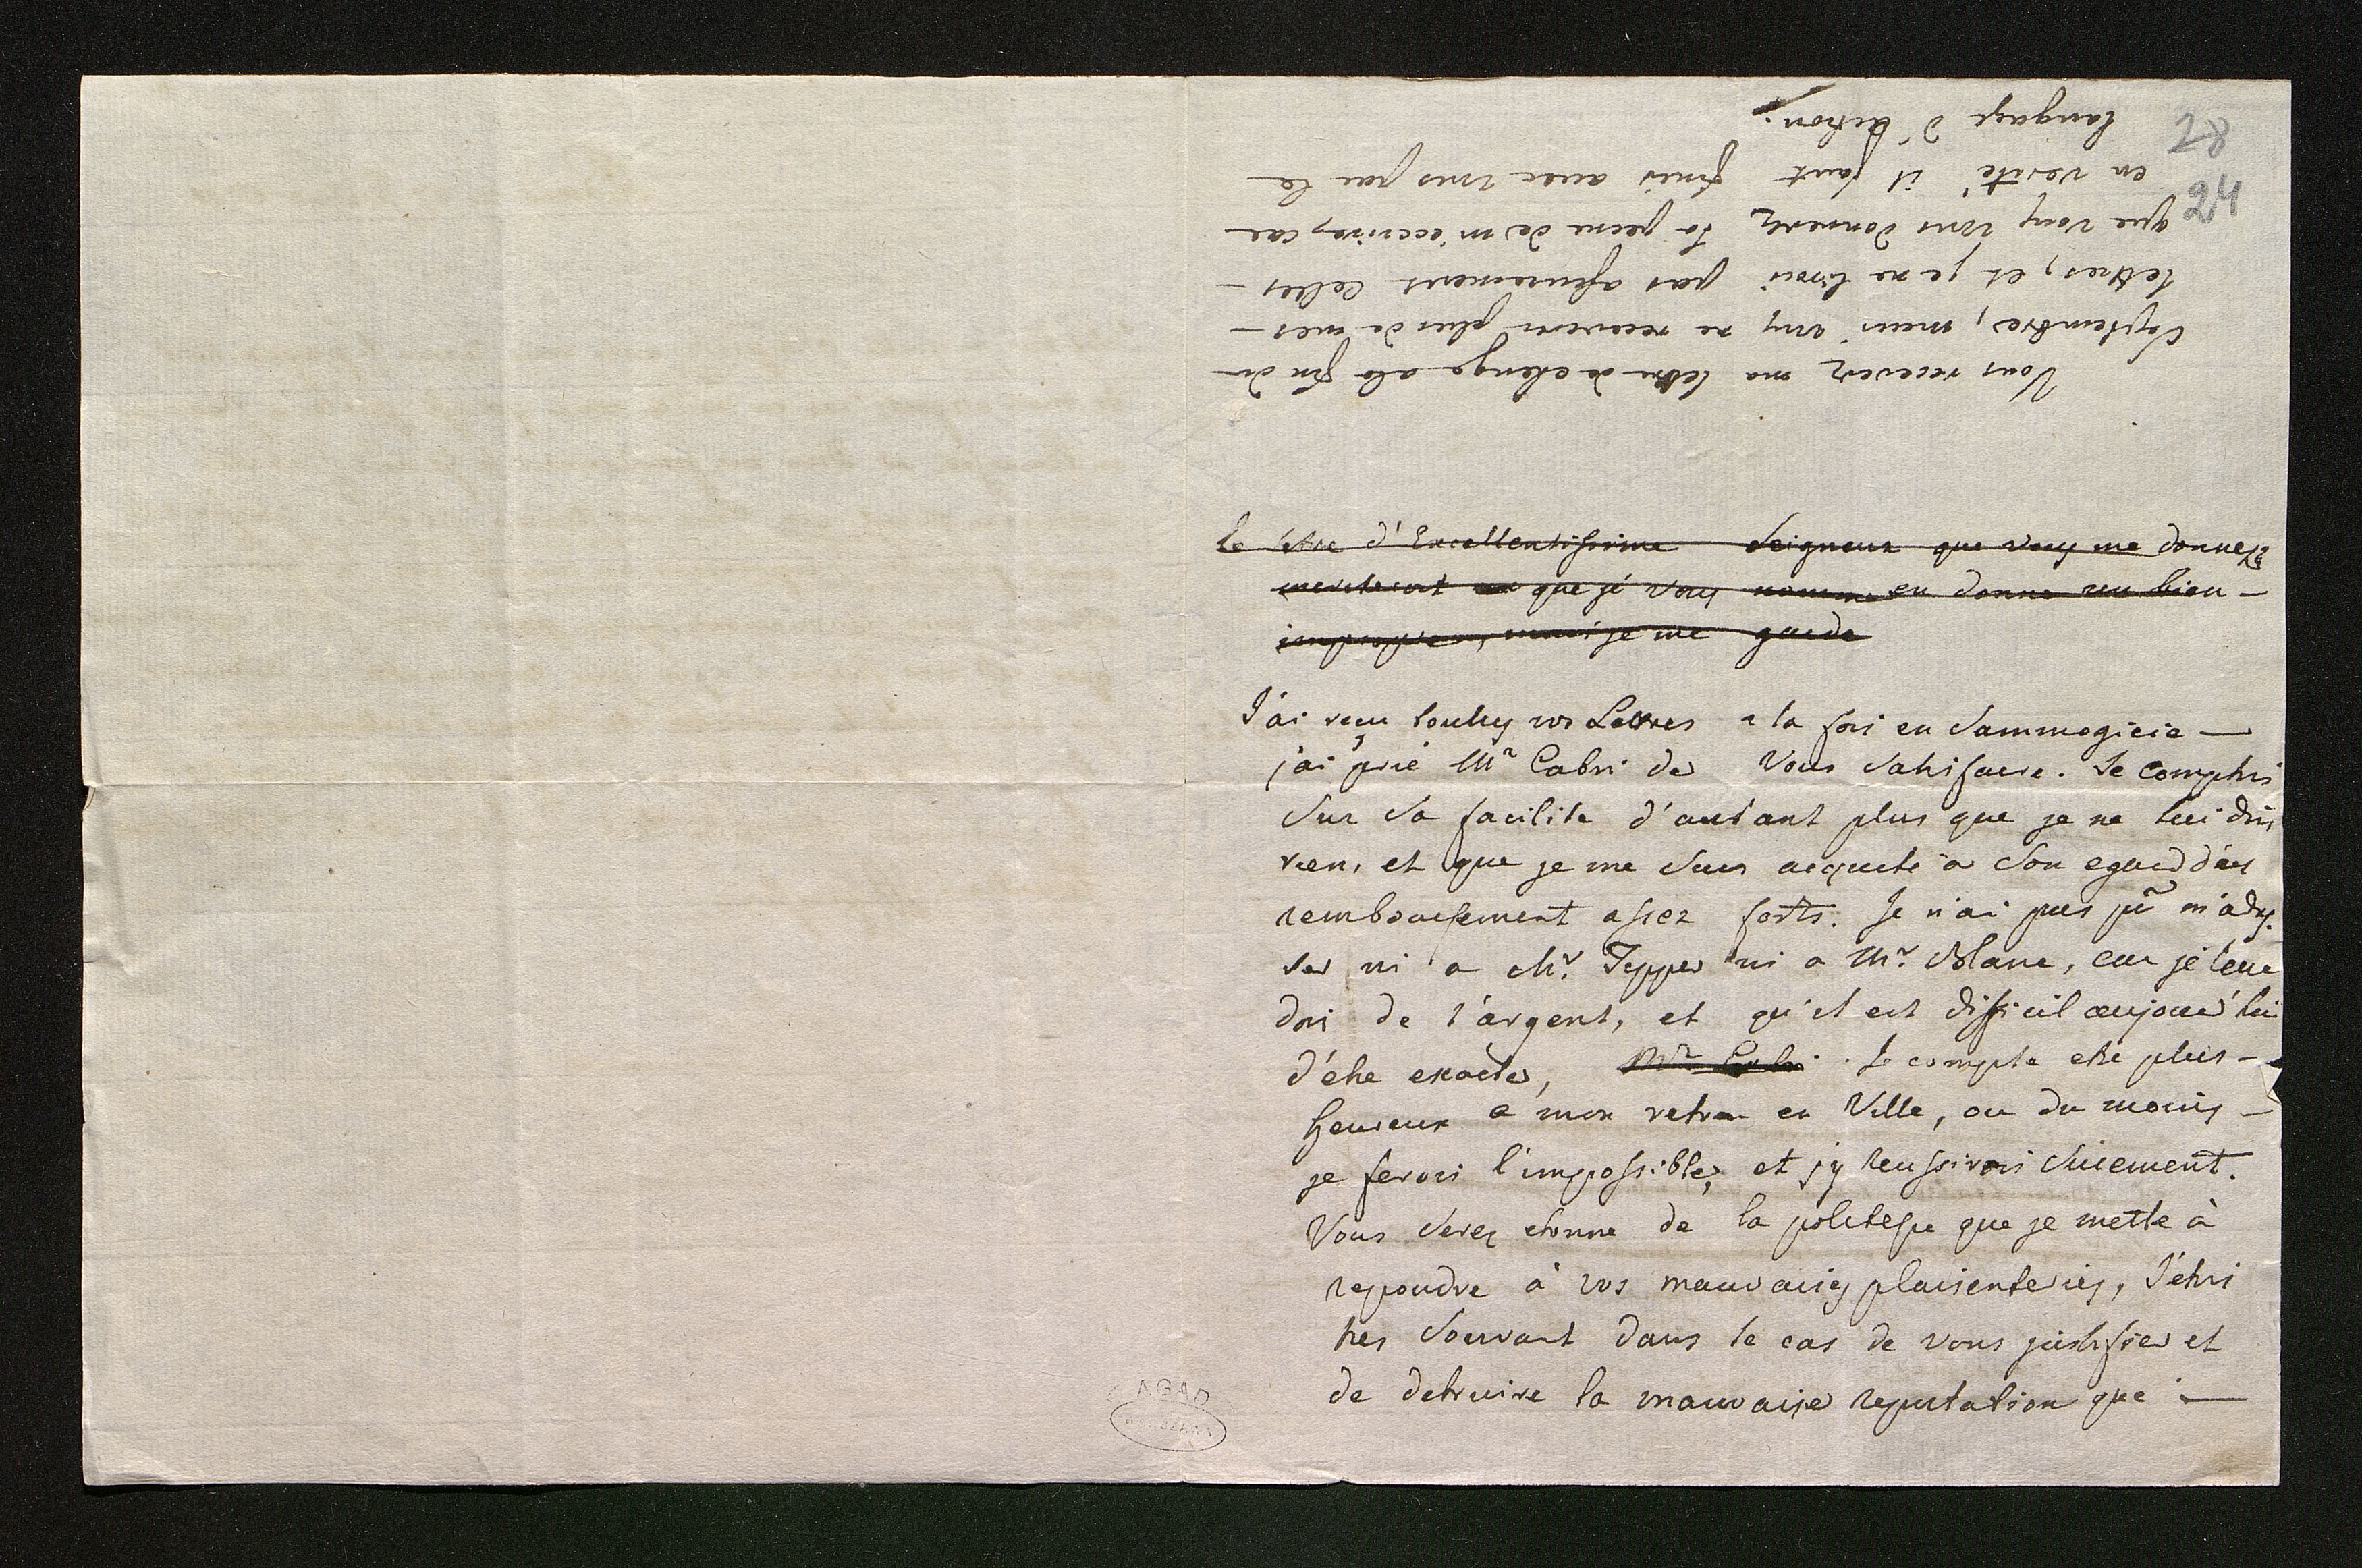 28
24
Vous recevez ma lettre de change a la fin de
Septembre, mais vous ne recevrez plus de mes —
lettres, et je ne lirai pas assurement celles —
que vous vous donnerez la peine de m'ecrire, car
en verité il faut finir avec vous par le
langage d'Action.
Le titre d'Excellentissime Seigneur que vous me donnez
meriteroit que je vous en donne un bien —
impropre, mais je me garde
J'ai reçu toutes vos Lettres a la fois en Sammogicie —
j'ai prié Mr Cabri de Vous satisfaire. Je comptois
sur sa facilite d'autant plus que je ne lui dois
rien, et que je me suis acquité a son egard d'un
remboursement assez forts. Je n'ai pas pû m'adres.
ser ni a Mr. Tepper ni a Mr. Blanc, car je leur
doi de l'argent, et qu'il est difficil aujourd'hui
d'être exacte, Mr Cabri. Je compte etre plus —
heureux a mon retour en Ville, ou du moins —
je ferois l'impossible, et j'y reussirois surement.
Vous serez etonne de la politesse que je mette à
repondre à vos mauvaises plaisenteries, J'etois
tres souvant dans le cas de vous justifier et
de detruire la mauvaise reputation que —
AGAD